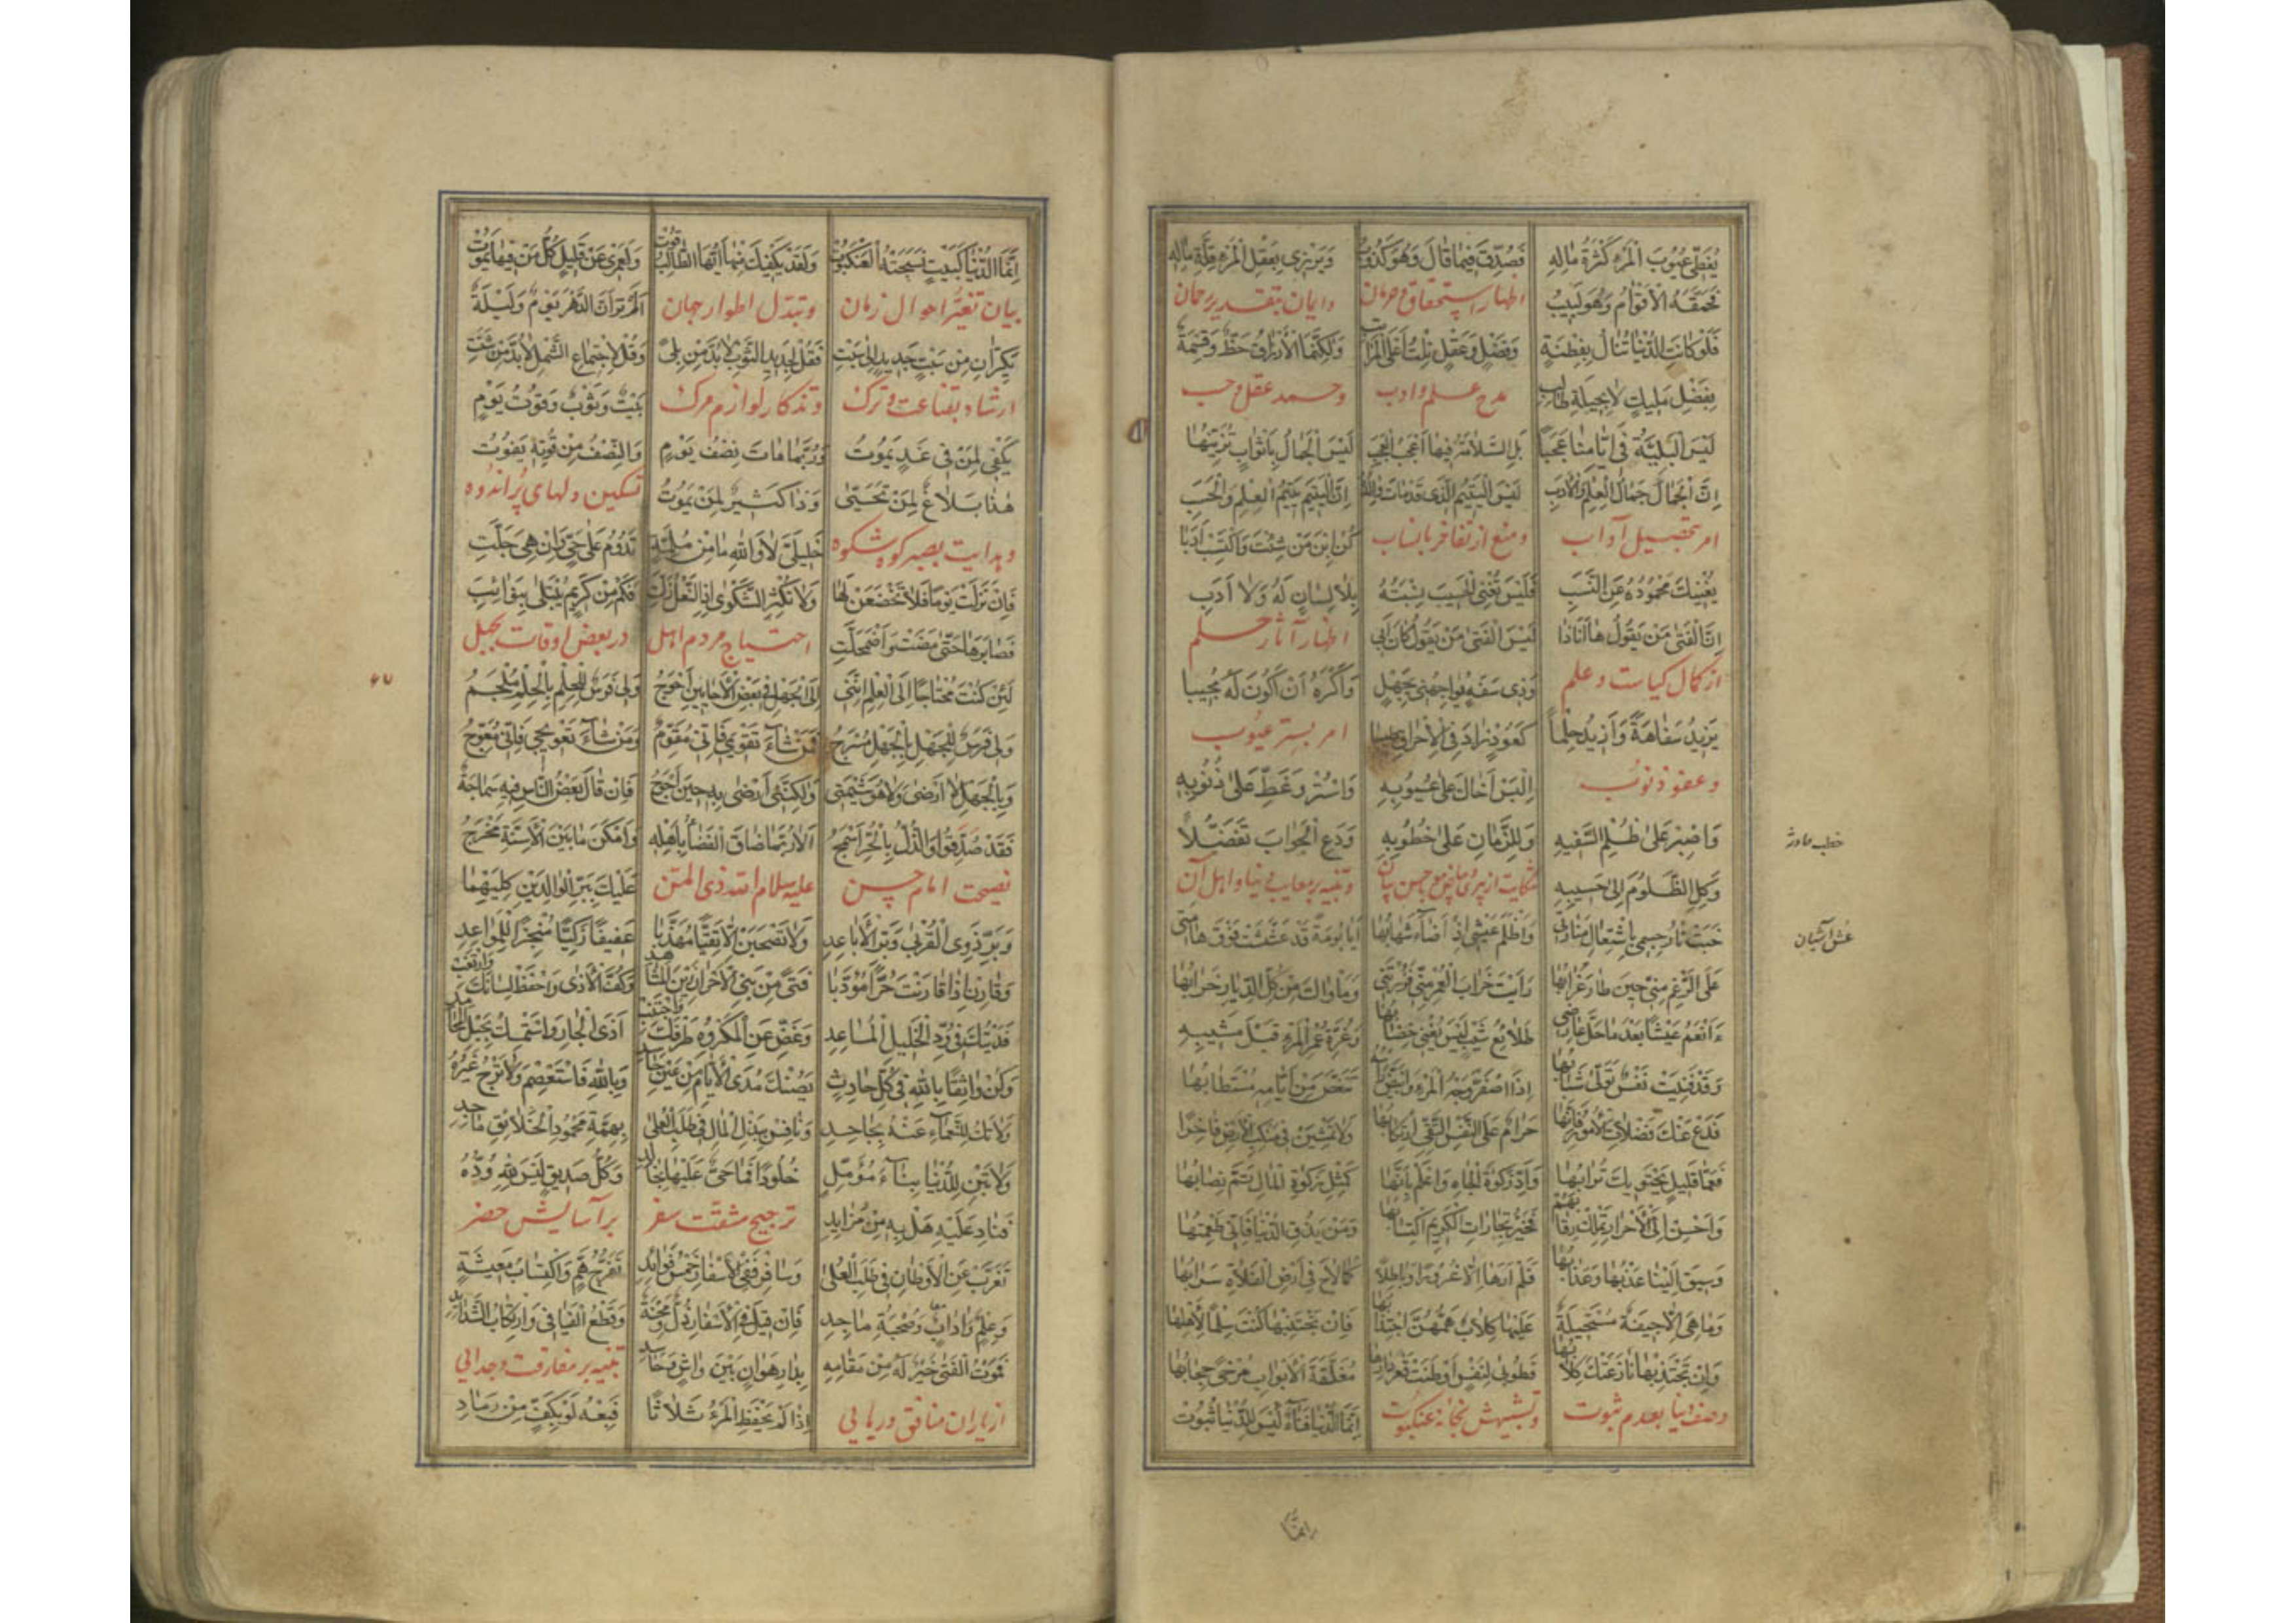 يُغَطّى عُيُوبَ الْمَرْءِ كَثْرَةُ مَالِهِ فَصُدِّقَ فِيمَا قَالَ وَهُوَ كَذُوبُ وَيُزْرِى بِعَقْلِ الْمَرْءِ قِلَّةُ مَالِهِ
فَحَمَّقَهُ الْأَقْوَامُ وَهُوَ لَبِيبُ اظهار استحقاق حرمان وايمان بتقدير رحمان
فَلَوْ كَانَتِ الدُّنْيَا تُنَالُ بِفِطْنَةٍ وَفَضْلٍ وَعَقْلٍ نِلْتُ أَعْلَى الْمَرَاتِبِ وَلَكِنَّمَا الْأَرْزَاقُ حَظٌّ وَقِسْمَةٌ
بِفَضْلِ مَلِيكٍ لَا بِحِيلَةِ طَالِبِ مدح علم وادب وحمد عقل وحسب
لَيْسَ الْبَلِيَّةُ فِى أَيَّامِنَا عَجَبًا بَلِ السَّلَامَةُ فِيهَا أَعْجَبُ الْعَجَبِ لَيْسَ الْجَمَالُ بِأَثْوَابٍ تُزَيِّنُهَا
إِنَّ الْجَمَالَ جَمَالُ الْعِلْمِ وَالْأَدَبِ لَيْسَ الْيَتِيمُ الَّذِى قَدْ مَاتَ وَالِدُهُ إِنَّ الْيَتِيمَ يَتِيمُ الْعِلْمِ وَالْحَسَبِ
امر بتحصيل آداب ومنع از تفاخر بانساب كُنِ ابْنَ مَنْ شِئْتَ وَاكْتَسِبْ أَدَبًا
يُغْنِيكَ مَحْمُودُهُ عَنِ النَّسَبِ فَلَيْسَ تُغْنِى الْحَسِيبَ نِسْبَتُهُ بِلَا لِسَانٍ لَهُ وَلَا أَدَبِ
إِنَّ الْفَتَى مَنْ يَقُولُ هَا أَنَا ذَا لَيْسَ الْفَتَى مَنْ يَقُولُ كَانَ أَبِى اظهار آثار حلم
از كمال كياست وعلم وَذِى سَفَهٍ يُوَاجِهُنِى بِجَهْلٍ وَأَكْرَهُ أَنْ أَكُونَ لَهُ مُجِيبَا
يَزِيدُ سَفَاهَةً وَأَزِيدُ حِلْمًا كَعُودٍ زَادَ فِى الْإِحْرَاقِ طِيبَا امر بستر عيوب
وعفو ذنوب اِلْبَسْ أَخَاكَ عَلَى عُيُوبِهِ وَاسْتُرْ وَغَطِّ عَلَى ذُنُوبِهِ
وَاصْبِرْ عَلَى ظُلْمِ السَّفِيهِ وَلِلزَّمَانِ عَلَى خُطُوبِهِ وَدَعِ الْجَوَابَ تَفَضُّلًا
وَكِلِ الظَّلُومَ إِلَى حَسِيبِهِ شكايت از پيرى وتنبيه بر معايب دنيا واهل آن
خَبَتْ نَارُ جِسْمِى بِاشْتِعَالِ مَفَارِقِى وَأَظْلَمَ عَيْشِى إِذْ أَضَاءَ شِهَابُهَا أَيَا بُومَةً قَدْ عَشَّشَتْ فَوْقَ هَامَتِى
عَلَى الرَّغْمِ مِنِّى حِينَ طَارَ غُرَابُهَا رَأَيْتِ خَرَابَ الْعُمْرِ مِنِّى فَزُرْتِنِى وَمَأْوَاكِ مِنْ كُلِّ الدِّيَارِ خَرَابُهَا
ءَأَنْعَمُ عَيْشًا بَعْدَ مَا حَلَّ عَارِضِى طَلَائِعُ شَيْبٍ لَيْسَ يُغْنِى خِضَابُهَا وَعِزَّةُ عُمْرِ الْمَرْءِ قَبْلَ مَشِيبِهِ
وَقَدْ فَنِيَتْ نَفْسٌ تَوَلَّى شَبَابُهَا إِذَا اصْفَرَّ وَجْهُ الْمَرْءِ وَابْيَضَّ رَأْسُهُ تَنَغَّصَ مِنْ أَيَّامِهِ مُسْتَطَابُهَا
فَدَعْ عَنْكَ فَضَلَاتِ الْأُمُورِ فَإِنَّهَا حَرَامٌ عَلَى النَّفْسِ التَّقِىِّ ارْتِكَابُهَا وَلَا تَمْشِيَنْ فِى مَنْكِبِ الْأَرْضِ فَاخِرًا
فَعَمَّا قَلِيلٍ يَحْتَوِيكَ تُرَابُهَا وَأَدِّ زَكَوةَ الْجَاهِ وَاعْلَمْ بِأَنَّهَا كَمِثْلِ زَكَوةِ الْمَالِ يَتِمُّ نِصَابُهَا
وَأَحْسِنْ إِلَى الْأَحْرَارِ تَمْلِكْ رِقَابَهُمْ فَخَيْرُ تِجَارَاتِ الْكَرِيمِ اكْتِسَابُهَا وَمَنْ يَذُقِ الدُّنْيَا فَإِنِّى طَعِمْتُهَا
وَسِيقَ إِلَيْنَا عَذْبُهَا وَعَذَابُهَا فَلَمْ أَرَهَا إِلَّا غُرُورًا وَبَاطِلًا كَمَا لَاحَ فِى أَرْضِ الْفَلَاةِ سَرَابُهَا
وَمَا هِىَ إِلَّا جِيفَةٌ مُسْتَحِيلَةٌ عَلَيْهَا كِلَابٌ هَمُّهُنَّ اجْتِذَابُهَا فَإِنْ تَجْتَنِبْهَا كُنْتَ سِلْمًا لِأَهْلِهَا
وَإِنْ تَجْتَذِبْهَا نَازَعَتْكَ كِلَابُهَا فَطُوبَى لِنَفْسٍ أَوْطَنَتْ قَعْرَ دَارِهَا مُغَلَّقَةَ الْأَبْوَابِ مُرْخًى حِجَابُهَا
وصف دنيا بعدم ثبوت وتشبيهش بخانهٔ عنكبوت إِنَّمَا الدُّنْيَا فَنَاءٌ لَيْسَ لِلدُّنْيَا ثُبُوتُ
انّما
عُشّ آشيان
إِنَّمَا الدُّنْيَا كَبَيْتٍ نَسَجَتْهُ الْعَنْكَبُوتُ وَلَقَدْ يَكْفِيكَ مِنْهَا أَيُّهَا الطَّالِبُ قُوتُ وَلَعَمْرِى عَنْ قَلِيلٍ كُلُّ مَنْ فِيهَا يَمُوتُ
بيان تغيّر احوال زمان وتبدّل اطوار جهان أَلَمْ تَرَ أَنَّ الدَّهْرَ يَوْمٌ وَلَيْلَةٌ
يَكُرَّانِ مِنْ سَبْتٍ جَدِيدٍ إِلَى سَبْتِ فَقُلْ لِجَدِيدِ الثَّوْبِ لَا بُدَّ مِنْ بِلًى وَقُلْ لِاجْتِمَاعِ الشَّمْلِ لَا بُدَّ مِنْ شَتِّ
ارشاد بقناعت وترك وتذكار لوازم مرگ بَيْتٌ وَثَوْبٌ وَقُوتُ يَوْمٍ
يَكْفِى لِمَنْ فِى غَدٍ يَمُوتُ وَرُبَّمَا مَاتَ نِصْفَ يَوْمٍ وَالنِّصْفُ مِنْ قُوتِهِ يَفُوتُ
هَذَا بَلَاغٌ لِمَنْ تَحَيَّى وَذَا كَثِيرٌ لِمَنْ يَمُوتُ تسكين دلهاى پُر اندوه
وهدايت بصبر كوه شكوه خَلِيلَىَّ لَا وَاللَّهِ مَا مِنْ مُلِمَّةٍ تَدُومُ عَلَى حَىٍّ وَإِنْ هِىَ جَلَّتِ
فَإِنْ نَزَلَتْ يَوْمًا فَلَا تَخْضَعَنْ لَهَا وَلَا تُكْثِرِ الشَّكْوَى إِذَا النَّعْلُ زَلَّتِ فَكَمْ مِنْ كَرِيمٍ يُبْتَلَى بِنَوَائِبَ
فَصَابَرَهَا حَتَّى مَضَتْ وَاضْمَحَلَّتِ احتياج مردم اهل در بعض اوقات بجهل
لَئِنْ كُنْتُ مُحْتَاجًا إِلَى الْعِلْمِ إِنَّنِى إِلَى الْجَهْلِ فِى بَعْضِ الْأَحَايِينِ أَحْوَجُ وَلِى فَرَسٌ لِلْحِلْمِ بِالْحِلْمِ مُلْجَمُ
وَلِى فَرَسٌ لِلْجَهْلِ بِالْجَهْلِ مُسْرَجُ فَمَنْ شَاءَ تَقْوِيمِى فَإِنِّى مُقَوَّمٌ وَمَنْ شَاءَ تَعْوِيجِى فَإِنِّى مُعَوَّجُ
وَبِالْجَهْلِ لَا أَرْضَى وَلَا هُوَ شِيمَتِى وَلَكِنَّنِى أَرْضَى بِهِ حِينَ أُحْوَجُ فَإِنْ قَالَ بَعْضُ النَّاسِ فِيهِ سَمَاجَةٌ
فَقَدْ صَدَقُوا وَالذُّلُّ بِالْحُرِّ أَسْمَجُ أَلَا رُبَّمَا ضَاقَ الْفَضَاءُ بِأَهْلِهِ وَأَمْكَنَ مَا بَيْنَ الْأَسِنَّةِ مَخْرَجُ
نصيحت امام حسن عليه سلام الله ذى المنن عَلَيْكَ بِبِرِّ الْوَالِدَيْنِ كِلَيْهِمَا
وَبِرِّ ذَوِى الْقُرْبَى وَبِرِّ الْأَبَاعِدِ وَلَا تَصْحَبَنْ إِلَّا تَقِيًّا مُهَذَّبًا عَفِيفًا زَكِيًّا مُنْجِزًا لِلْمَوَاعِدِ
وَقَارِنْ إِذَا قَارَنْتَ حُرًّا مُؤَدَّبًا فَتًى مِنْ بَنِى الْأَحْرَارِ زَيْنَ الْمَشَاهِدِ وَكُفَّ الْأَذَى وَاحْفَظْ لِسَانَكَ وَارْتَقِبْ
فَدَيْتُكَ فِى وُدِّ الْخَلِيلِ الْمُسَاعِدِ وَغُضَّ عَنِ الْمَكْرُوهِ طَرْفَكَ وَاجْتَنِبْ أَذَى الْجَارِ وَاسْتَمْسِكْ بِحَبْلِ الْمَحَامِدِ
وَكُنْ وَاثِقًا بِاللَّهِ فِى كُلِّ حَادِثٍ يَصُنْكَ مُدَى الْأَيَّامِ مِنْ عَيْنِ حَاسِدِ وَبِاللَّهِ فَاسْتَعْصِمْ وَلَا تَرْجُ غَيْرَهُ
وَلَا تَكُ لِلنَّعْمَاءِ عَنْهُ بِجَاحِدِ وَنَافِسْ بِبَذْلِ الْمَالِ فِى طَلَبِ الْعُلَى بِهِمَّةِ مَحْمُودِ الْخَلَائِقِ مَاجِدِ
وَلَا تَبْنِ لِلدُّنْيَا بِنَاءَ مُؤَمِّلٍ خُلُودًا فَمَا حَىٌّ عَلَيْهَا بِخَالِدِ وَكُلُّ صَدِيقٍ لَيْسَ لِلَّهِ وُدُّهُ
فَنَادِ عَلَيْهِ هَلْ بِهِ مِنْ مُزَايِدِ ترجيح مشقّت سفر بر آسايش حضر
تَغَرَّبْ عَنِ الْأَوْطَانِ فِى طَلَبِ الْعُلَى وَسَافِرْ فَفِى الْأَسْفَارِ خَمْسُ فَوَائِدِ تَفَرُّجُ هَمٍّ وَاكْتِسَابُ مَعِيشَةٍ
وَعِلْمٌ وَآدَابٌ وَصُحْبَةُ مَاجِدِ فَإِنْ قِيلَ فِى الْأَسْفَارِ ذُلٌّ وَمِحْنَةٌ وَقَطْعُ الْفَيَافِى وَارْتِكَابُ الشَّدَائِدِ
فَمَوْتُ الْفَتَى خَيْرٌ لَهُ مِنْ مَقَامِهِ بِدَارِ هَوَانٍ بَيْنَ وَاشٍ وَحَاسِدِ تنبيه بر مفارقت وجدائى
از ياران منافق وريائى إِذَا لَمْ يَحْفَظِ الْمَرْءُ ثَلَاثًا فَبِعْهُ لَوْ بِكَفٍّ مِنْ رَمَادِ